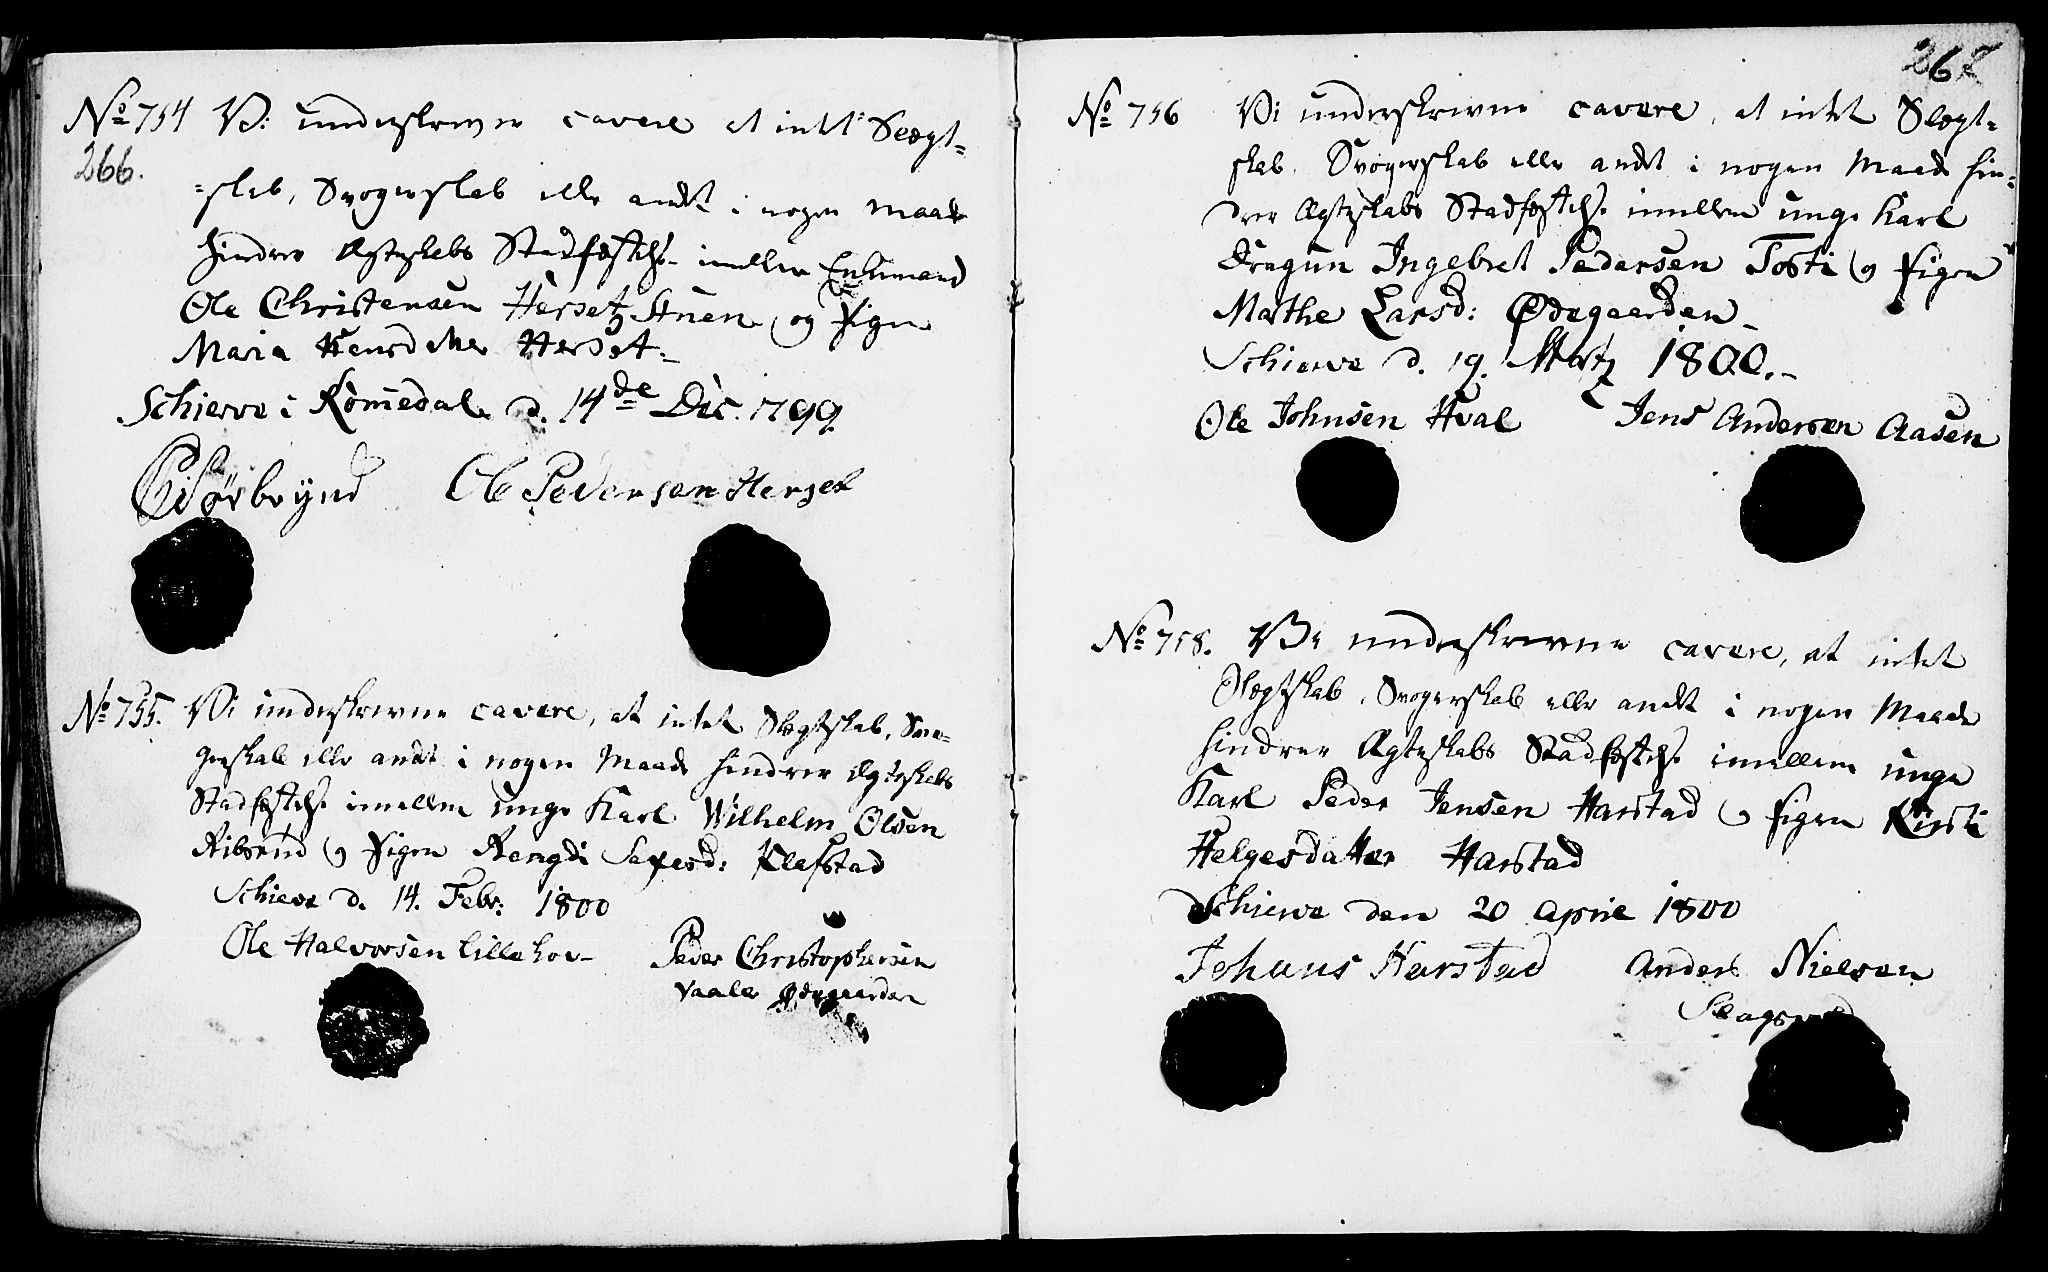 No 754 Vi underskrevne cavere at intet Slægt-
266.
-skab, Svogerskab eller andet i nogen maade
hindrer Ægteskabs Stadfæstelse imellem Enkemand
Ole Christensen Hersetz Stuen og Pigen
Maria Hensdatter Herset.
Schierve i Romedal d. 14de Dec. 1799
Ole Pedersen Herset
No 755. Vi underskrevne cavere, at intet Slægtskab, Svo-
gerskab eller andet i nogen Maade hindrer Ægteskabs
Stadfæstelse imellem unge Karl Wilhelm Olsen
og Pigen Rengdi Klafstad
Schierve d. 14. Febr: 1800
Ole Halvorsen Lillehov
Peder Christophersen
Vaaler Ødegaarden
267
No 756 Vi underskrevne cavere, at intet Slægt-
skab, Svogerskab eller andet i nogen Maade hin-
drer Ægteskabs Stadfæstelse imellem unge Karl
Dragun Ingebret Pedersen Tosti og Pigen
Marthe Larsd: Ødegaarden
Schierve d. 19. Martz 1800.
Ole Johnsen Hval Jens Andersen Aasen
No 758. Vi underskrevne cavere, at intet
Slægtskab, Svogerskab eller andet i nogen Maade
hindrer Ægteskabs Stadfæstelse imellem unge
Karl Peder Jensen Harstad og Pigen Kirsti
Helgesdatter Harstad
Schierve den 20 April 1800
Johans Harstad Anders Nielsen